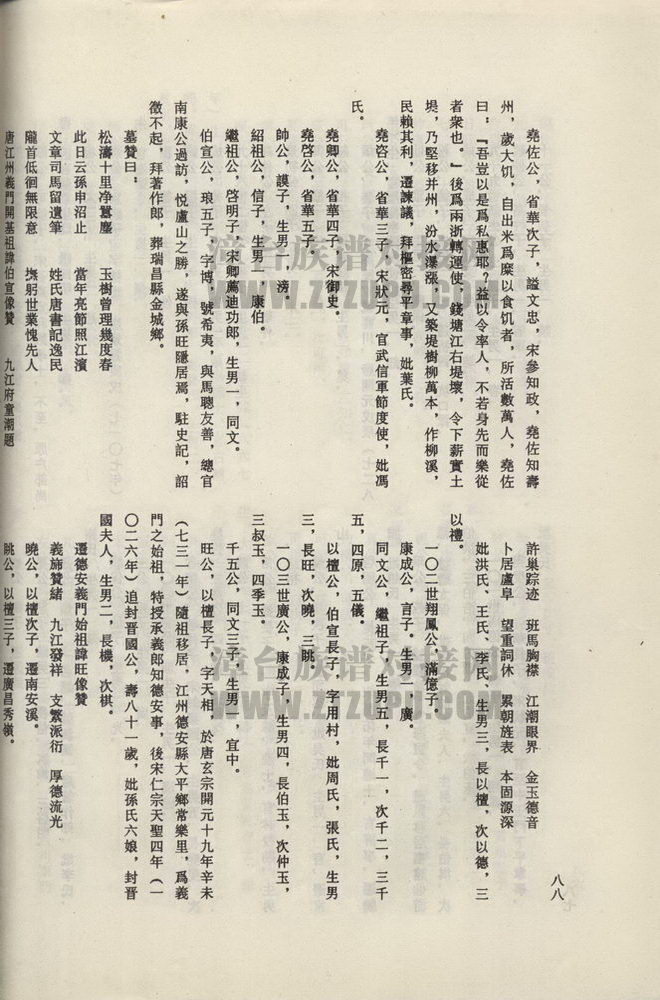 堯佐公，省華次子，謚文忠，宋參知政，堯佐知壽
州，歲大饥，自出米爲糜以食饥者，所活數萬人，堯佐
曰：『吾豈以是爲私惠耶？益以令率人，不若身先而樂從
者衆也。』後爲兩浙轉運使，錢塘江右堤壞，令下薪實土
堤，乃堅移并州，汾水瀑漲，又築堤樹柳萬本，作柳溪，
民賴其利，遷諫議，拜樞密尋平章事，妣葉氏。
堯咨公，省華三子，宋狀元，官武信軍節度使，妣馮
氏。
堯卿公，省華四子，宋御史。
堯啓公，省華五子。
帥公，謨子，生男一，滂。
紹祖公，信子，生男一，康伯。
繼祖公，啓明子，宋卿薦迪功郎，生男一，同文。
伯宣公，琅五子，字博，號希夷，與馬聰友善，總官
南康公過訪，悦盧山之勝，遂與孫旺隱居焉，駐史記，詔
徵不起，拜著作郎，葬瑞昌縣金城鄉。
墓贊曰：
松濤十里净囂塵　玉樹曾理幾度春
此日云孫申沼止　當年亮節照江濱
文章司馬留遺筆　姓氏唐書記逸民
隴首低徊無限意　撫躬世業愧先人
唐江州義門開基祖諱伯宣像贊　九江府童潮題
許巢踪迹　班馬胸襟　江潮眼界　金玉德音
卜居盧阜　望重詞休　累朝旌表　本固源深
妣洪氏、王氏、李氏、生男三，長以檀，次以德，三
以禮。
一〇二世翔鳳公，滿億子。
康成公，言子。生男一，廣。
同文公，繼祖子，生男五，長千一，次千二，三千
五，四原，五儀。
以檀公，伯宣長子，字用村，妣周氏，張氏，生男
三，長旺，次曉，三眺。
一〇三世廣公，康成子，生男四，長伯玉，次仲玉，
三叔玉，四季玉。
千五公，同文三子，生男一，宜中。
旺公，以檀長子，字天相，於唐玄宗開元十九年辛未
（七三一年）隨祖移居，江州德安縣大平鄉常樂里，爲義
門之始祖，特授承義郎知德安事，後宋仁宗天聖四年（一
〇二六年）追封晋國公，壽八十一歲，妣孫氏六娘，封晋
國夫人，生男二，長機，次祺。
遷德安義門始祖諱旺像贊
義旆贊緒　九江發祥　支繁派衍　厚德流光
曉公，以檀次子，遷南安溪。
眺公，以檀三子，遷廣昌秀嶺。
八八
漳台族谱对接网
WWW.ZTZUPU.COM
漳台族谱对接网
WWW.ZTZUPU.COM